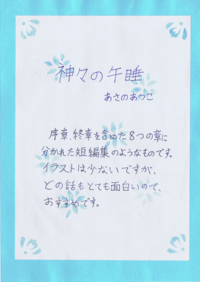 神々の午睡
あさのあつこ
序章、終章を含めた8つの章に
分かれた短編集のようなものです。
イラストは少ないですが、
どの話もとても面白いので、
おすすめです。